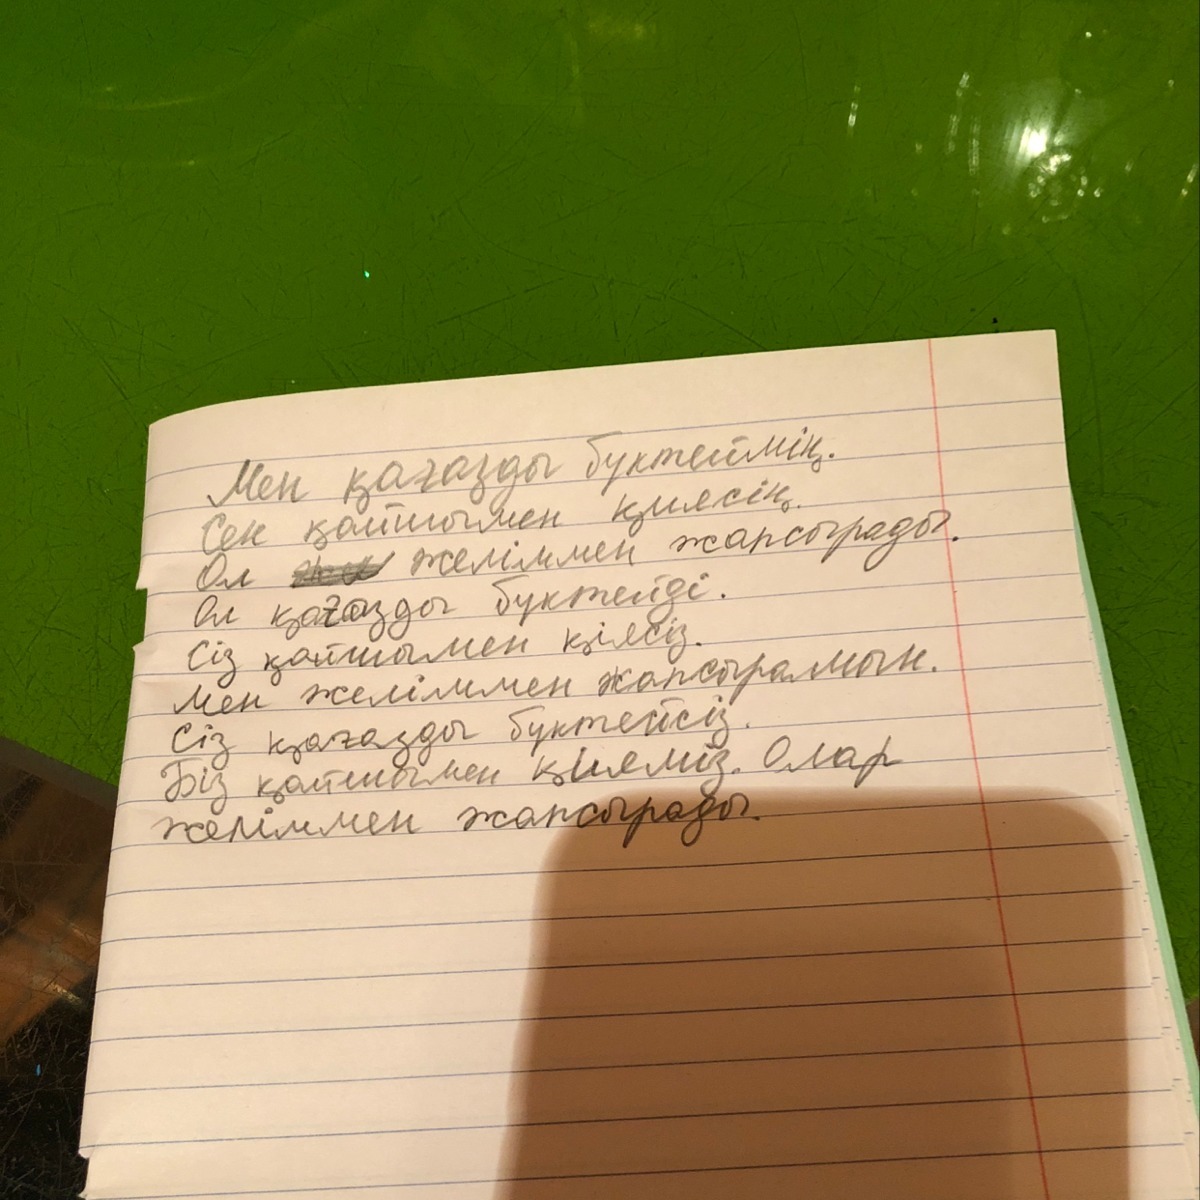 Мен қағазды бүктеймің.
Сен қайшымен қиясің.
Ол желіммен жапсырады.
Ол қағазды бүктейді.
Сіз қайшымен қіясіз.
Мен желіммен жапсырамын.
Сіз қағазды бүктейсіз.
Біз қайшымен қияміз. Олар
желіммен жапсырады.